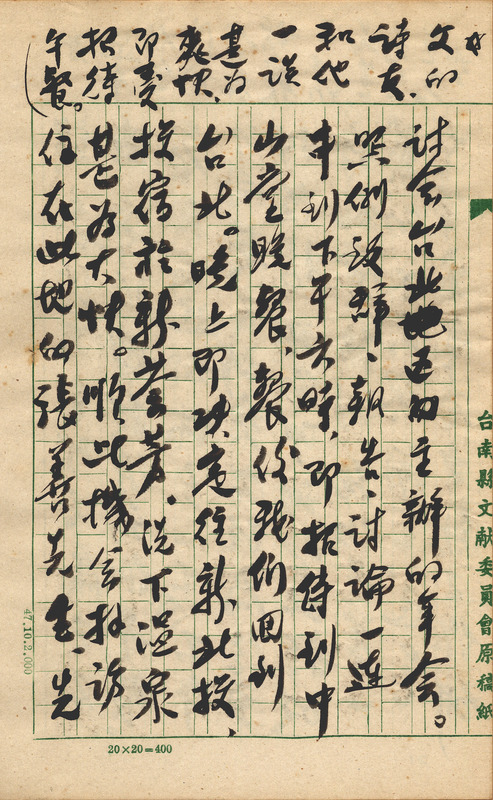 好文的
詩友、
和他
一談
甚为
爽快、
即受
招待
午餐。
討会台北地區的主辦的年会。
照例致辞、報告、討論一連
串到下午六時、即招待到中
山堂晚餐、餐後我们回到
台北。晚上即决定往新北投、
投宿於新薈芳。洗下温泉
甚为大快。順此機会拜访
住在此地的張善先生、先
台南縣文献委員會原稿紙
47.10.2.000
20×20=400